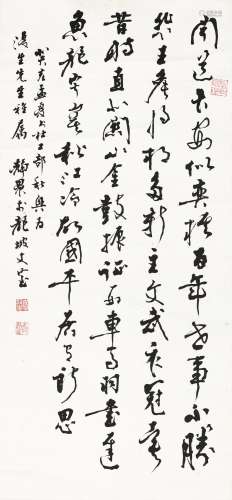 聞道長安似奕棋百年世事不勝
悲王侯第宅皆新主文武衣冠異
昔時直北關山金鼓振征西車馬羽書遲
魚龍寂寞秋江冷故國平居有所思
戊辰孟夏書杜工部秋興為
生先生雅屬 靜農於龍坡丈室